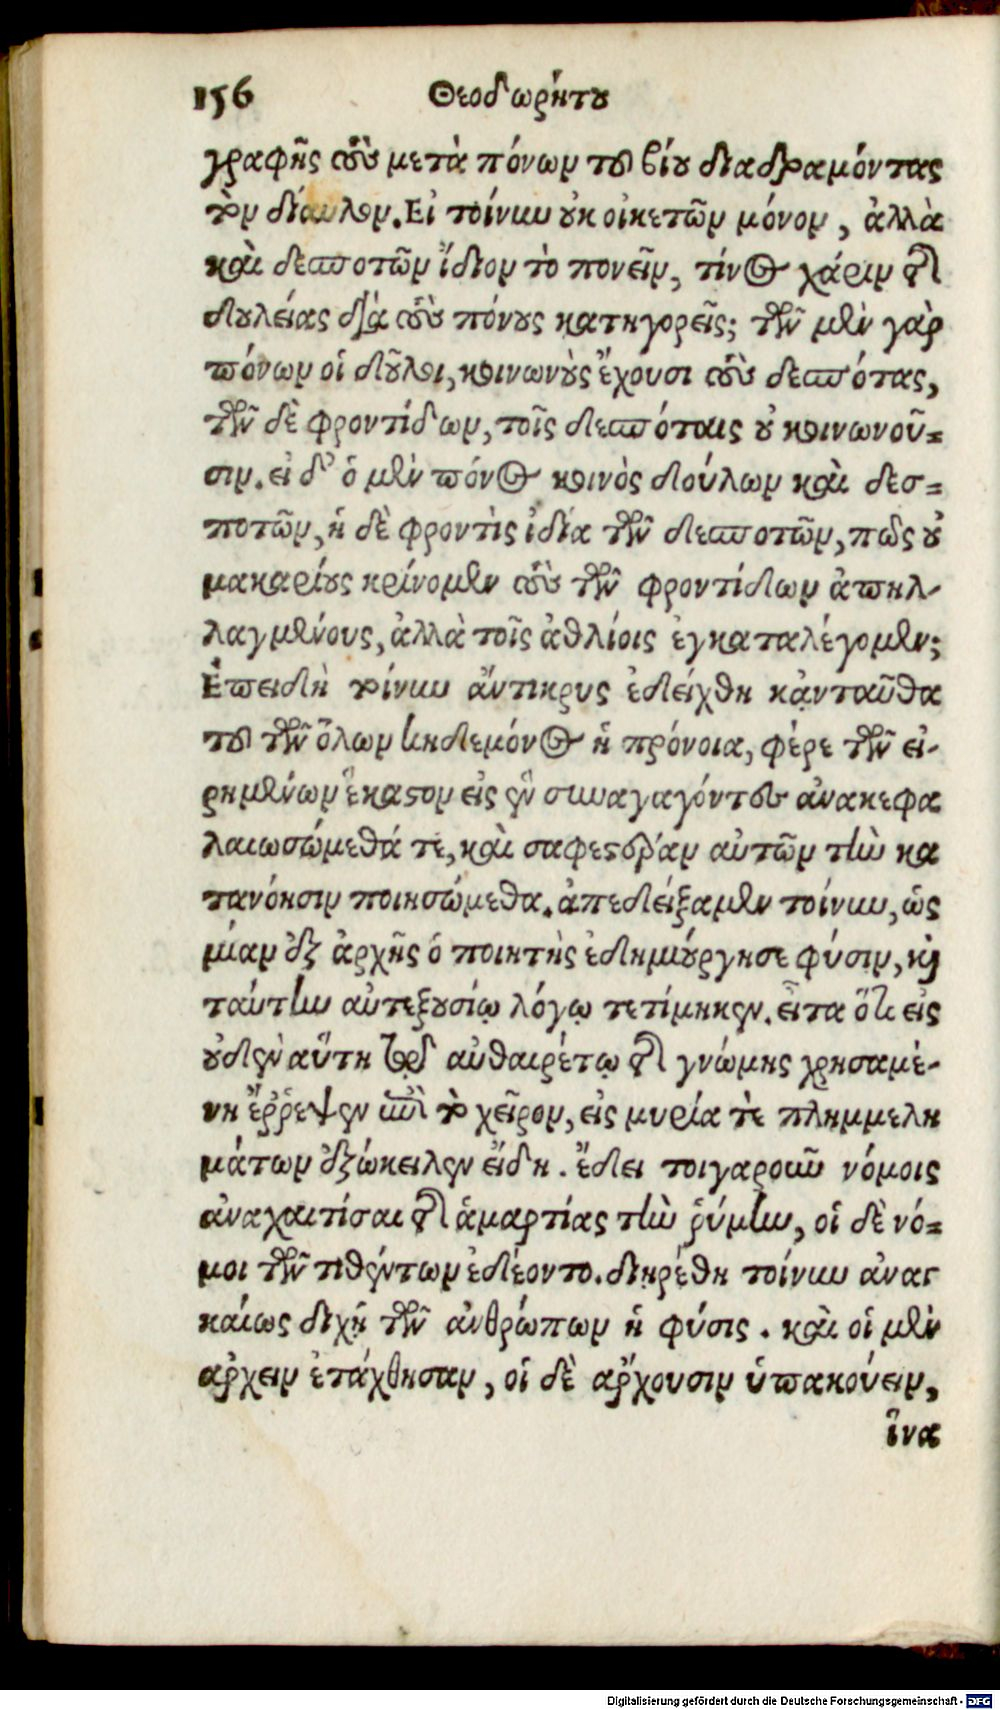 156 Θεοδωρήτου
γραφῆς τοὺς μετὰ πόνων τοῦ βίου διαδραμόντας
τὸν δίαυλον. Εἰ τοίνυν οὐκ οἰκετῶν μόνον, ἀλλὰ
καὶ δεσποτῶν ἴδιον τὸ πονεῖν, τίνος χάριν τῆς
δουλείας διὰ τοὺς πόνους κατηγορεῖς; τῶν μὲν γὰρ
πόνων οἱ δοῦλοι, κοινωνοὺς ἔχουσι τοὺς δεσπότας,
τῶν δὲ φροντίδων, τοῖς δεσπόταις οὐ κοινωνοῦ-
σιν. εἰ δ' ὁ μὲν πόνος κοινὸς δούλων καὶ δεσ-
ποτῶν, ἡ δὲ φροντὶς ἰδία τῶν δεσποτῶν, πῶς οὐ
μακαρίους κρίνομεν τοὺς τῶν φροντίδων ἀπηλ-
λαγμένους, ἀλλὰ τοῖς ἀθλίοις ἐγκαταλέγομεν;
Ἐπειδὴ τοίνυν ἄντικρυς ἐδείχθη κἀνταῦθα
τοῦ τῶν ὅλων κηδεμόνος ἡ πρόνοια, φέρε τῶν εἰ-
ρημένων ἕκαστον εἰς ἓν συναγαγόντες ἀνακεφα
λαιωσώμεθά τε, καὶ σαφεστέραν αὐτῶν τὴν κα
τανόησιν ποιησώμεθα. ἀπεδείξαμεν τοίνυν, ὡς
μίαν ἐξ ἀρχῆς ὁ ποιητὴς ἐδημιούργησε φύσιν, καὶ
ταύτην αὐτεξουσίῳ λόγῳ τετίμηκεν. εἶτα ὅτι εἰς
οὐδὲν αὕτη παρ' αὐθαιρέτῳ τῆς γνώμης χρησαμέ-
νη ἔῤῥεψεν ἐπὶ τὸ χεῖρον, εἰς μυρία τὲ πλημμελη
μάτων ἐξώκειλεν εἴδη. ἔδει τοιγαροῦν νόμοις
ἀναχαιτίσαι τῆς ἁμαρτίας τὴν ῥύμην, οἱ δὲ νό-
μοι τῶν τιθέντων ἐδέοντο. διῃρέθη τοίνυν ἀναγ
καίως διχῇ τῶν ἀνθρώπων ἡ φύσις. καὶ οἱ μὲν
ἄρχειν ἐτάχθησαν, οἱ δὲ ἄρχουσιν ὑπακούειν,
ἵνα
Digitalisierung gefördert durch die Deutsche Forschungsgemeinschaft - DFG